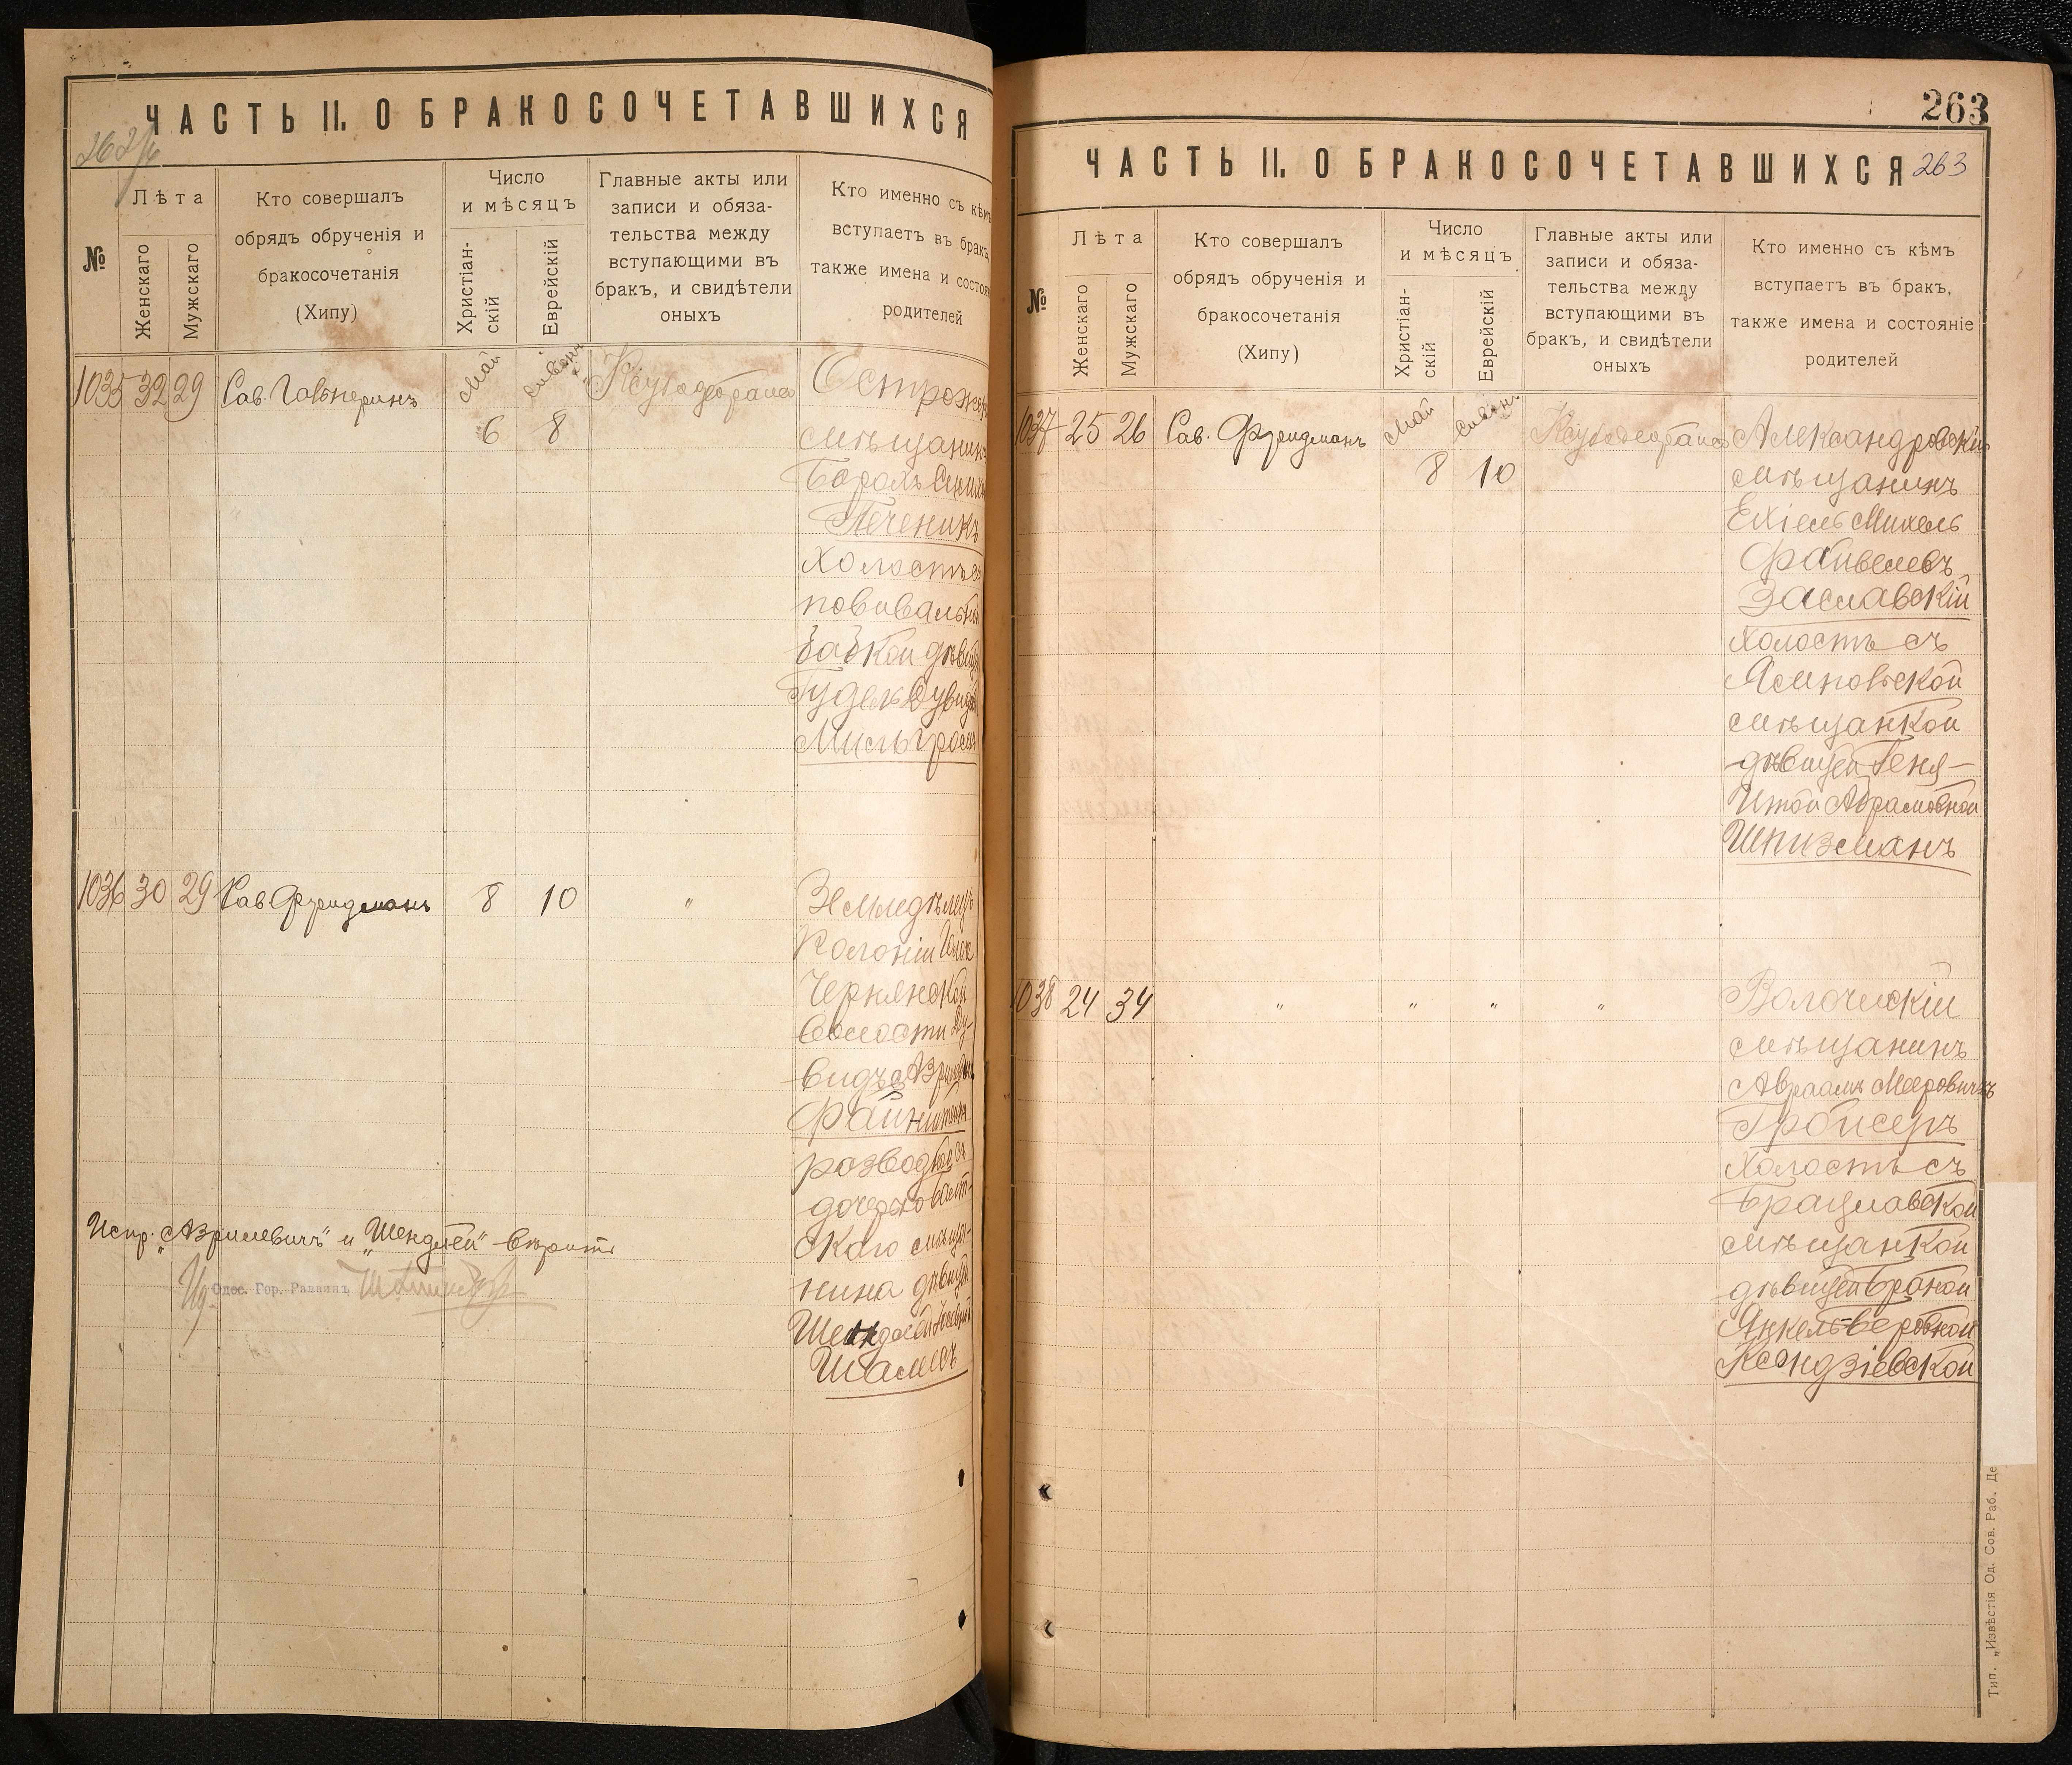 ЧАСТЬ II. О БРАКОСОЧЕТАВШИХСЯ
№
Лѣта
Женскаго
Мужскаго
Кто совершалъ
обрядъ обрученія и
бракосочетанія
(Хипу)
Число
и мѣсяцъ
Христіан-
скій
Еврейскій
Главные акты или
записи и обяза-
тельства между
вступающими въ
бракъ, и свидѣтели
оныхъ
Кто именно съ кѣмъ
вступаетъ въ бракъ,
также имена и состоян
родителей
1035 32 29 Рав. Гальперинъ Май Сиванъ
6 8
мѣщанинъ
Борохъ
Печеникъ
Холостъ съ
повивальн
бабкой дѣвиц
Гудель Дувидо
Мильгромъ
1036 30 29 Рав Фридманъ 8 10 "
Земледѣлецъ
Колоніи
Чернянской
Волости Ду-
видъ Азрилев
Файнштейн
розвод съ
дочерью
скаго мѣща-
нина дѣвиц
Шендлей
Шамесъ
Испр. „Азрилевичъ" и „Шендлей" вѣрить
Одес. Гор. Раввинъ
263
ЧАСТЬ II. О БРАКОСОЧЕТАВШИХСЯ 263
№
Лѣта
Женскаго
Мужскаго
Кто совершалъ
обрядъ обрученія и
бракосочетанія
(Хипу)
Число
и мѣсяцъ
Христіан-
скій
Еврейскій
Главные акты или
записи и обяза-
тельства между
вступающими въ
бракъ, и свидѣтели
оныхъ
Кто именно съ кѣмъ
вступаетъ въ бракъ,
также имена и состояніе
родителей
1037 25 26 Рав. Фридманъ Май Сиван. Александровскій
8 10 мѣщанинъ
Ехіель Михель
Файвелевъ
Заславскій
холостъ съ
Ясиновской
мѣщанкой
дѣвицей Геня-
Итой Абрамовной
Шпизманъ
1038 24 34 " " " " Волочискій
мѣщанинъ
Авраамъ Мееровичъ
Гройсеръ
Холостъ съ
Брацлавской
мѣщанкой
дѣвицей Броной
Янкель-Беровной
Ксендзіевской
Тип. „Извѣстія Од. Сов. Раб. Де